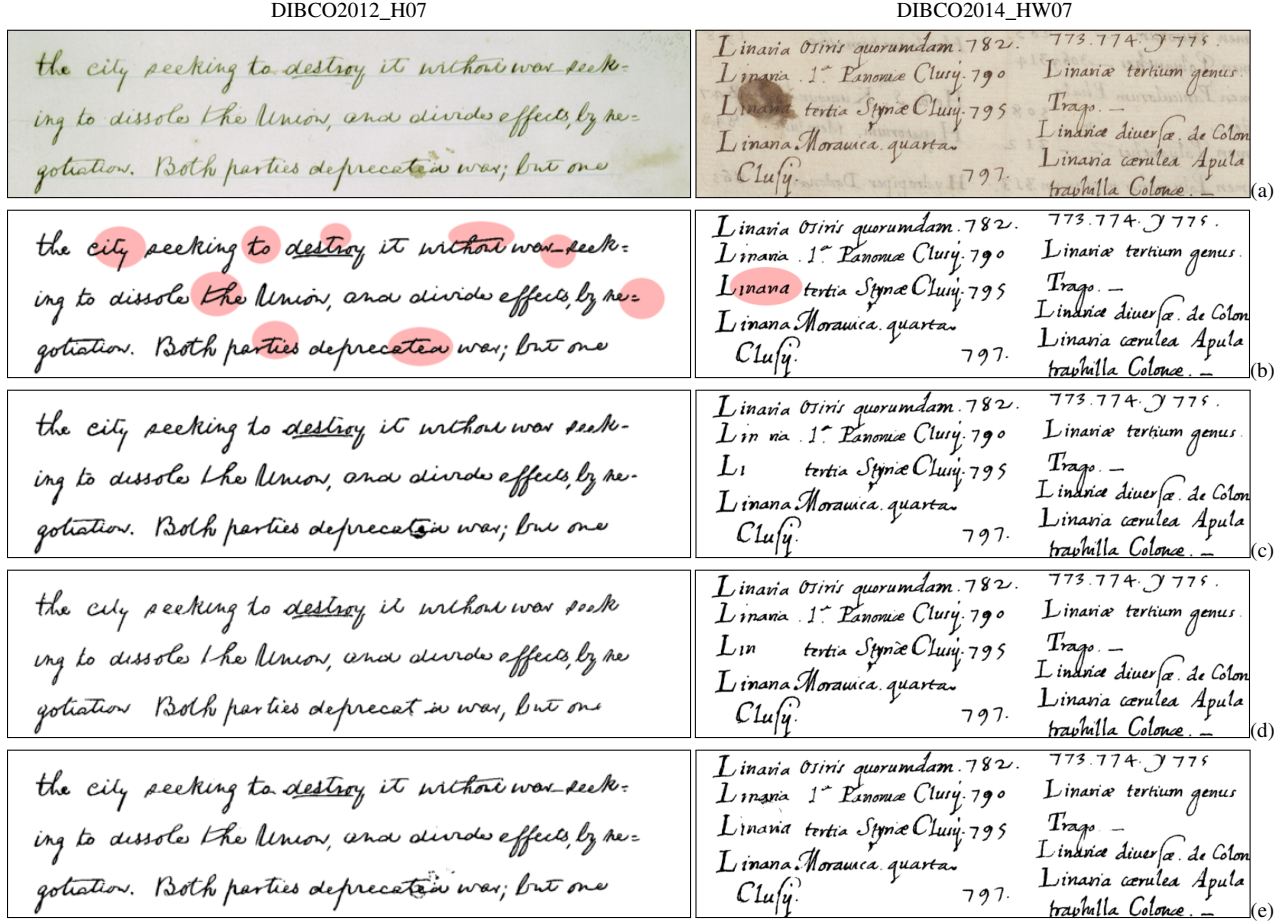 DIBCO2012_H07
the city seeking to destroy it without war seek=
ing to dissole the Union, and divide effects, by ne=
gotiation. Both parties deprecated war; but one
DIBCO2014_HW07
Linaria Osiris quorumdam. 782.
Linaria. 1ª Panoniæ Clusij. 790
Linaria tertia Styriæ Clusij. 795
Linaria Morauica. quarta.
Clusij. 797.
773.774. y 775.
Linariæ tertium genus.
Trago. —
Linariæ diuersæ. de Colon
Linaria cærulea Apula
traphilla Colonæ. —
(a)
the city seeking to destroy it without war—seek=
ing to dissole the Union, and divide effects, by ne=
gotiation. Both parties deprecated war; but one
Linaria Osiris quorumdam. 782.
Linaria. 1ª Panoniæ Clusij. 790
Linaria tertia Styriæ Clusij. 795
Linaria Morauica. quarta.
Clusij. 797.
773.774. y 775.
Linariæ tertium genus.
Trago. —
Linariæ diuersæ. de Colon
Linaria cærulea Apula
traphilla Colonæ. —
(b)
the city seeking to destroy it without war seek-
ing to dissole the Union, and divide effects, by ne-
gotiation. Both parties war; but one
Linaria Osiris quorumdam. 782.
Lin ria. 1ª Panoniæ Clusij. 790
Li tertia Styriæ Clusij. 795
Linaria Morauica. quarta.
Clusij. 797.
773.774. y 775.
Linariæ tertium genus.
Trago. —
Linariæ diuersæ. de Colon
Linaria cærulea Apula
traphilla Colonæ. —
(c)
the city seeking to destroy it without war seek
ing to dissole the Union, and divide effects, by ne
gotiation Both parties deprecat war, but one
Linaria Osiris quorumdam. 782.
Linaria. 1ª Panoniæ Clusij. 790
Lin tertia Styriæ Clusij. 795
Linaria Morauica. quarta.
Clusij. 797.
773.774. y 775.
Linariæ tertium genus.
Trago. —
Linariæ diuersæ. de Colon
Linaria cærulea Apula
traphilla Colonæ. —
(d)
the city seeking to destroy it without war—seek=
ing to dissole the Union, and divide effects, by ne=
gotiation. Both parties war; but one
Linaria Osiris quorumdam. 782.
Linaria 1ª Panoniæ Clusij. 790
Linaria tertia Styriæ Clusij. 795
Linaria Morauica. quarta.
Clusij. 797.
773.774. y 775
Linariæ tertium genus
Trago. —
Linariæ diuersæ. de Colon
Linaria cærulea Apula
traphilla Colonæ. —
(e)